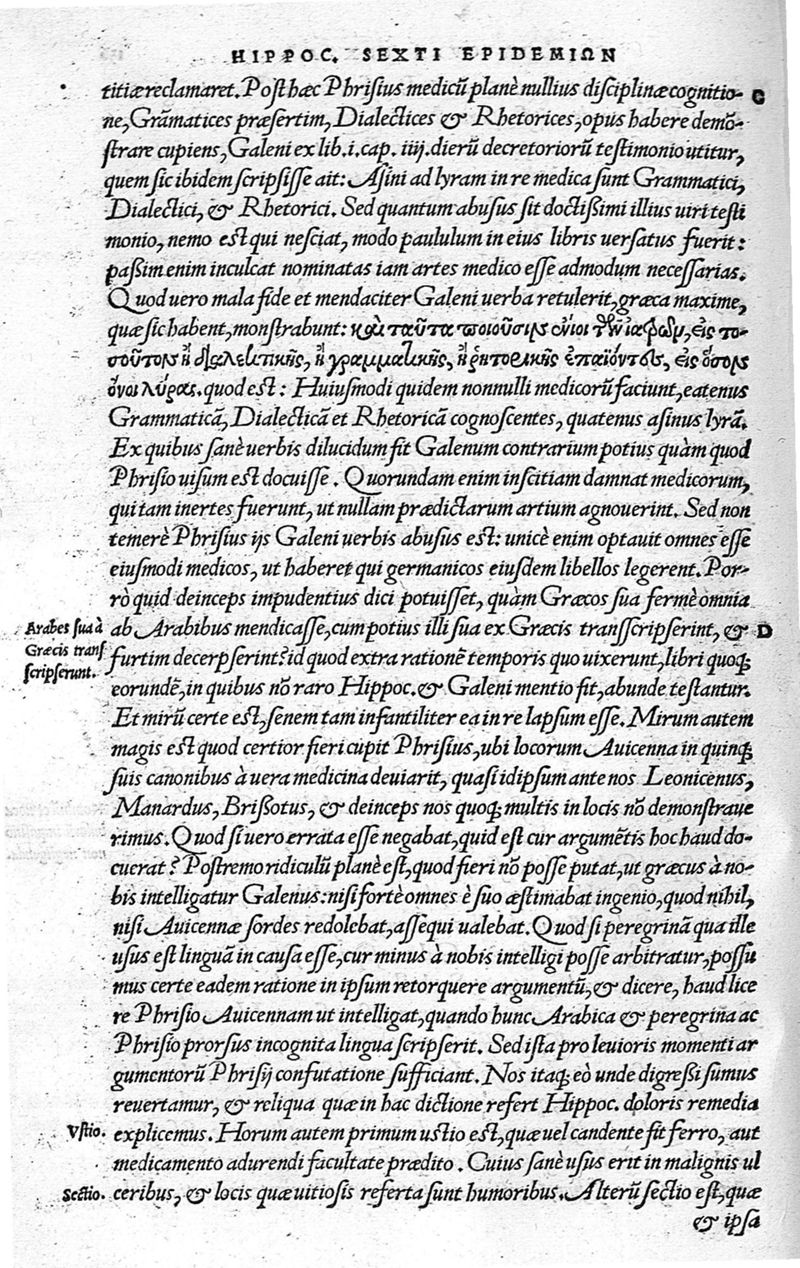 HIPPOC. SEXTI EPIDEMIΩN
titiæ reclamaret. Post hæc Phrisius medicũ planè nullius disciplinæ cognitio- C
ne, Grãmatices præsertim, Dialectices & Rhetorices, opus habere demõ-
strare cupiens, Galeni ex lib. i. cap. iiij. dierũ decretoriorũ testimonio utitur,
quem sic ibidem scripsisse ait: Asini ad lyram in re medica sunt Grammatici,
Dialectici, & Rhetorici. Sed quantum abusus sit doctißimi illius uiri testi
monio, nemo est qui nesciat, modo paululum in eius libris uersatus fuerit:
paßim enim inculcat nominatas iam artes medico esse admodum necessarias.
Quod uero mala fide et mendaciter Galeni uerba retulerit, græca maxime,
quæ sic habent, monstrabunt: καὶ ταῦτα ποιοῦσιν ἔνιοι τῶν ἰατρῶν, εἰς το-
σοῦτον ἢ διαλεκτικῆς, ἢ γραμματικῆς, ἢ ῥητορικῆς ἐπαΐοντες, εἰς ὅσον
ὄνοι λύρας. quod est: Huiusmodi quidem nonnulli medicorũ faciunt, eatenus
Grammaticã, Dialecticã et Rhetoricã cognoscentes, quatenus asinus lyrã.
Ex quibus sanè uerbis dilucidum fit Galenum contrarium potius quàm quod
Phrisio uisum est docuisse. Quorundam enim inscitiam damnat medicorum,
qui tam inertes fuerunt, ut nullam prædictarum artium agnouerint. Sed non
temerè Phrisius ijs Galeni uerbis abusus est: unicè enim optauit omnes esse
eiusmodi medicos, ut haberet qui germanicos eiusdem libellos legerent. Por-
rò quid deinceps impudentius dici potuisset, quàm Græcos sua fermè omnia
Arabes sua à
Græcis transſ
scripserunt.
ab Arabibus mendicasse, cum potius illi sua ex Græcis transscripserint, & D
furtim decerpserint? id quod extra rationẽ temporis quo uixerunt, libri quoq;
eorundẽ, in quibus nõ raro Hippoc. & Galeni mentio fit, abunde testantur.
Et mirũ certe est, senem tam infantiliter ea in re lapsum esse. Mirum autem
magis est quod certior fieri cupit Phrisius, ubi locorum Auicenna in quinq;
suis canonibus à uera medicina deuiarit, quasi idipsum ante nos Leonicenus,
Manardus, Brißotus, & deinceps nos quoq; multis in locis nõ demonstraue
rimus. Quod si uero errata esse negabat, quid est cur argumẽtis hoc haud do-
cuerat? Postremo ridiculũ planè est, quod fieri nõ posse putat, ut græcus à no-
bis intelligatur Galenus: nisi fortè omnes è suo æstimabat ingenio, quod nihil,
nisi Auicennæ sordes redolebat, assequi ualebat. Quod si peregrinã qua ille
usus est linguã in causa esse, cur minus à nobis intelligi posse arbitratur, possu
mus certe eadem ratione in ipsum retorquere argumentũ, & dicere, haud lice
re Phrisio Auicennam ut intelligat, quando hunc Arabica & peregrina ac
Phrisio prorsus incognita lingua scripserit. Sed ista pro leuioris momenti ar
gumentorũ Phrisij confutatione sufficiant. Nos itaq; eò unde digreßi sumus
reuertamur, & reliqua quæ in hac dictione refert Hippoc. doloris remedia
Vstio. explicemus. Horum autem primum ustio est, quæ uel candente fit ferro, aut
medicamento adurendi facultate prædito. Cuius sanè usus erit in malignis ul
Sectio. ceribus, & locis quæ uitiosis referta sunt humoribus. Alterũ sectio est, quæ
& ipsa